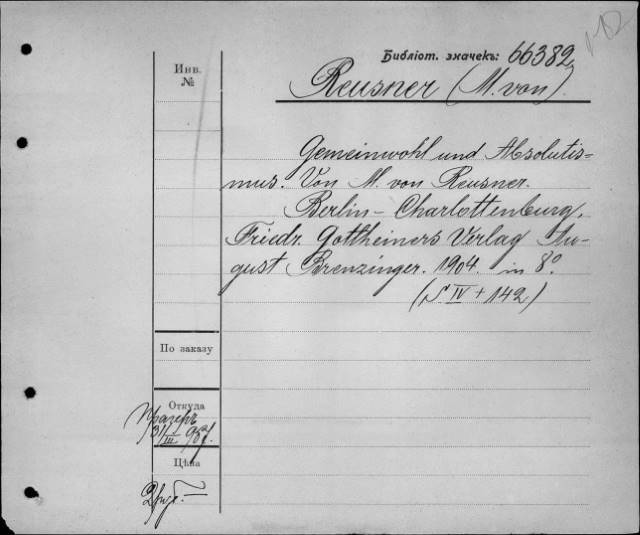 Библіот. значекъ: 66382
Инв.
№
Reusner (M. von).
Gemeinwohl und Absolutis=
mus. Von M. von Reusner.
Berlin - Charlottenburg.
Friedr. Gottheiners Verlag Au-
gust Brenzinger. 1904. in 8º.
(S IV + 142)
По заказу
Откуда
31/III 907.
Цѣна